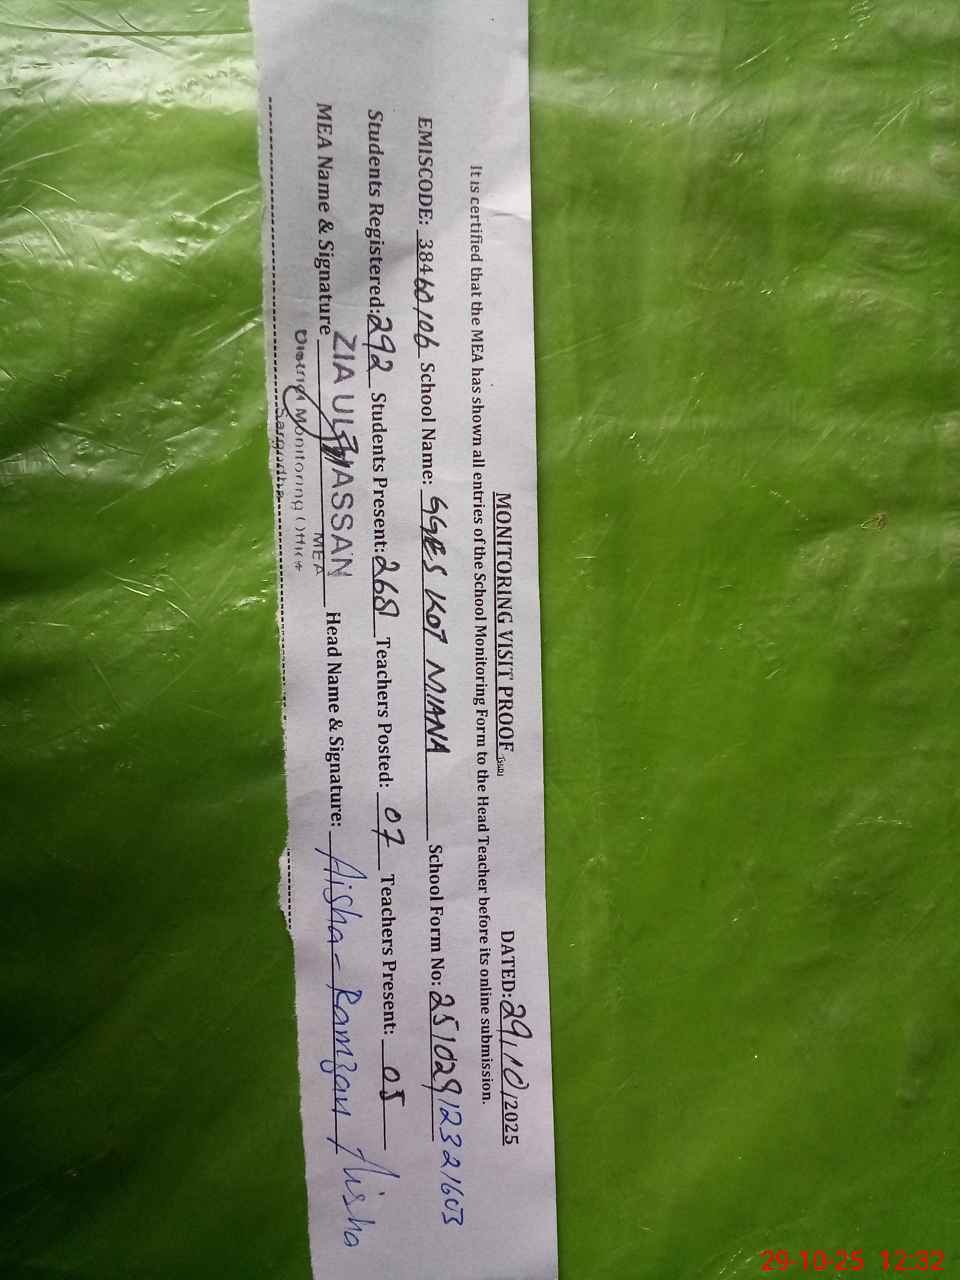 MONITORING VISIT PROOF (S&D) DATED: 29/10/2025
It is certified that the MEA has shown all entries of the School Monitoring Form to the Head Teacher before its online submission.
EMISCODE: 38460106 School Name: GGES KOT MIANA School Form No: 25102912321603
Students Registered: 292 Students Present: 268 Teachers Posted: 07 Teachers Present: 05
MEA Name & Signature ZIA UL HASSAN Head Name & Signature: Aisha - Ramzan Aisha
MEA
District Monitoring Office
Sargodha
29-10-25 12:32